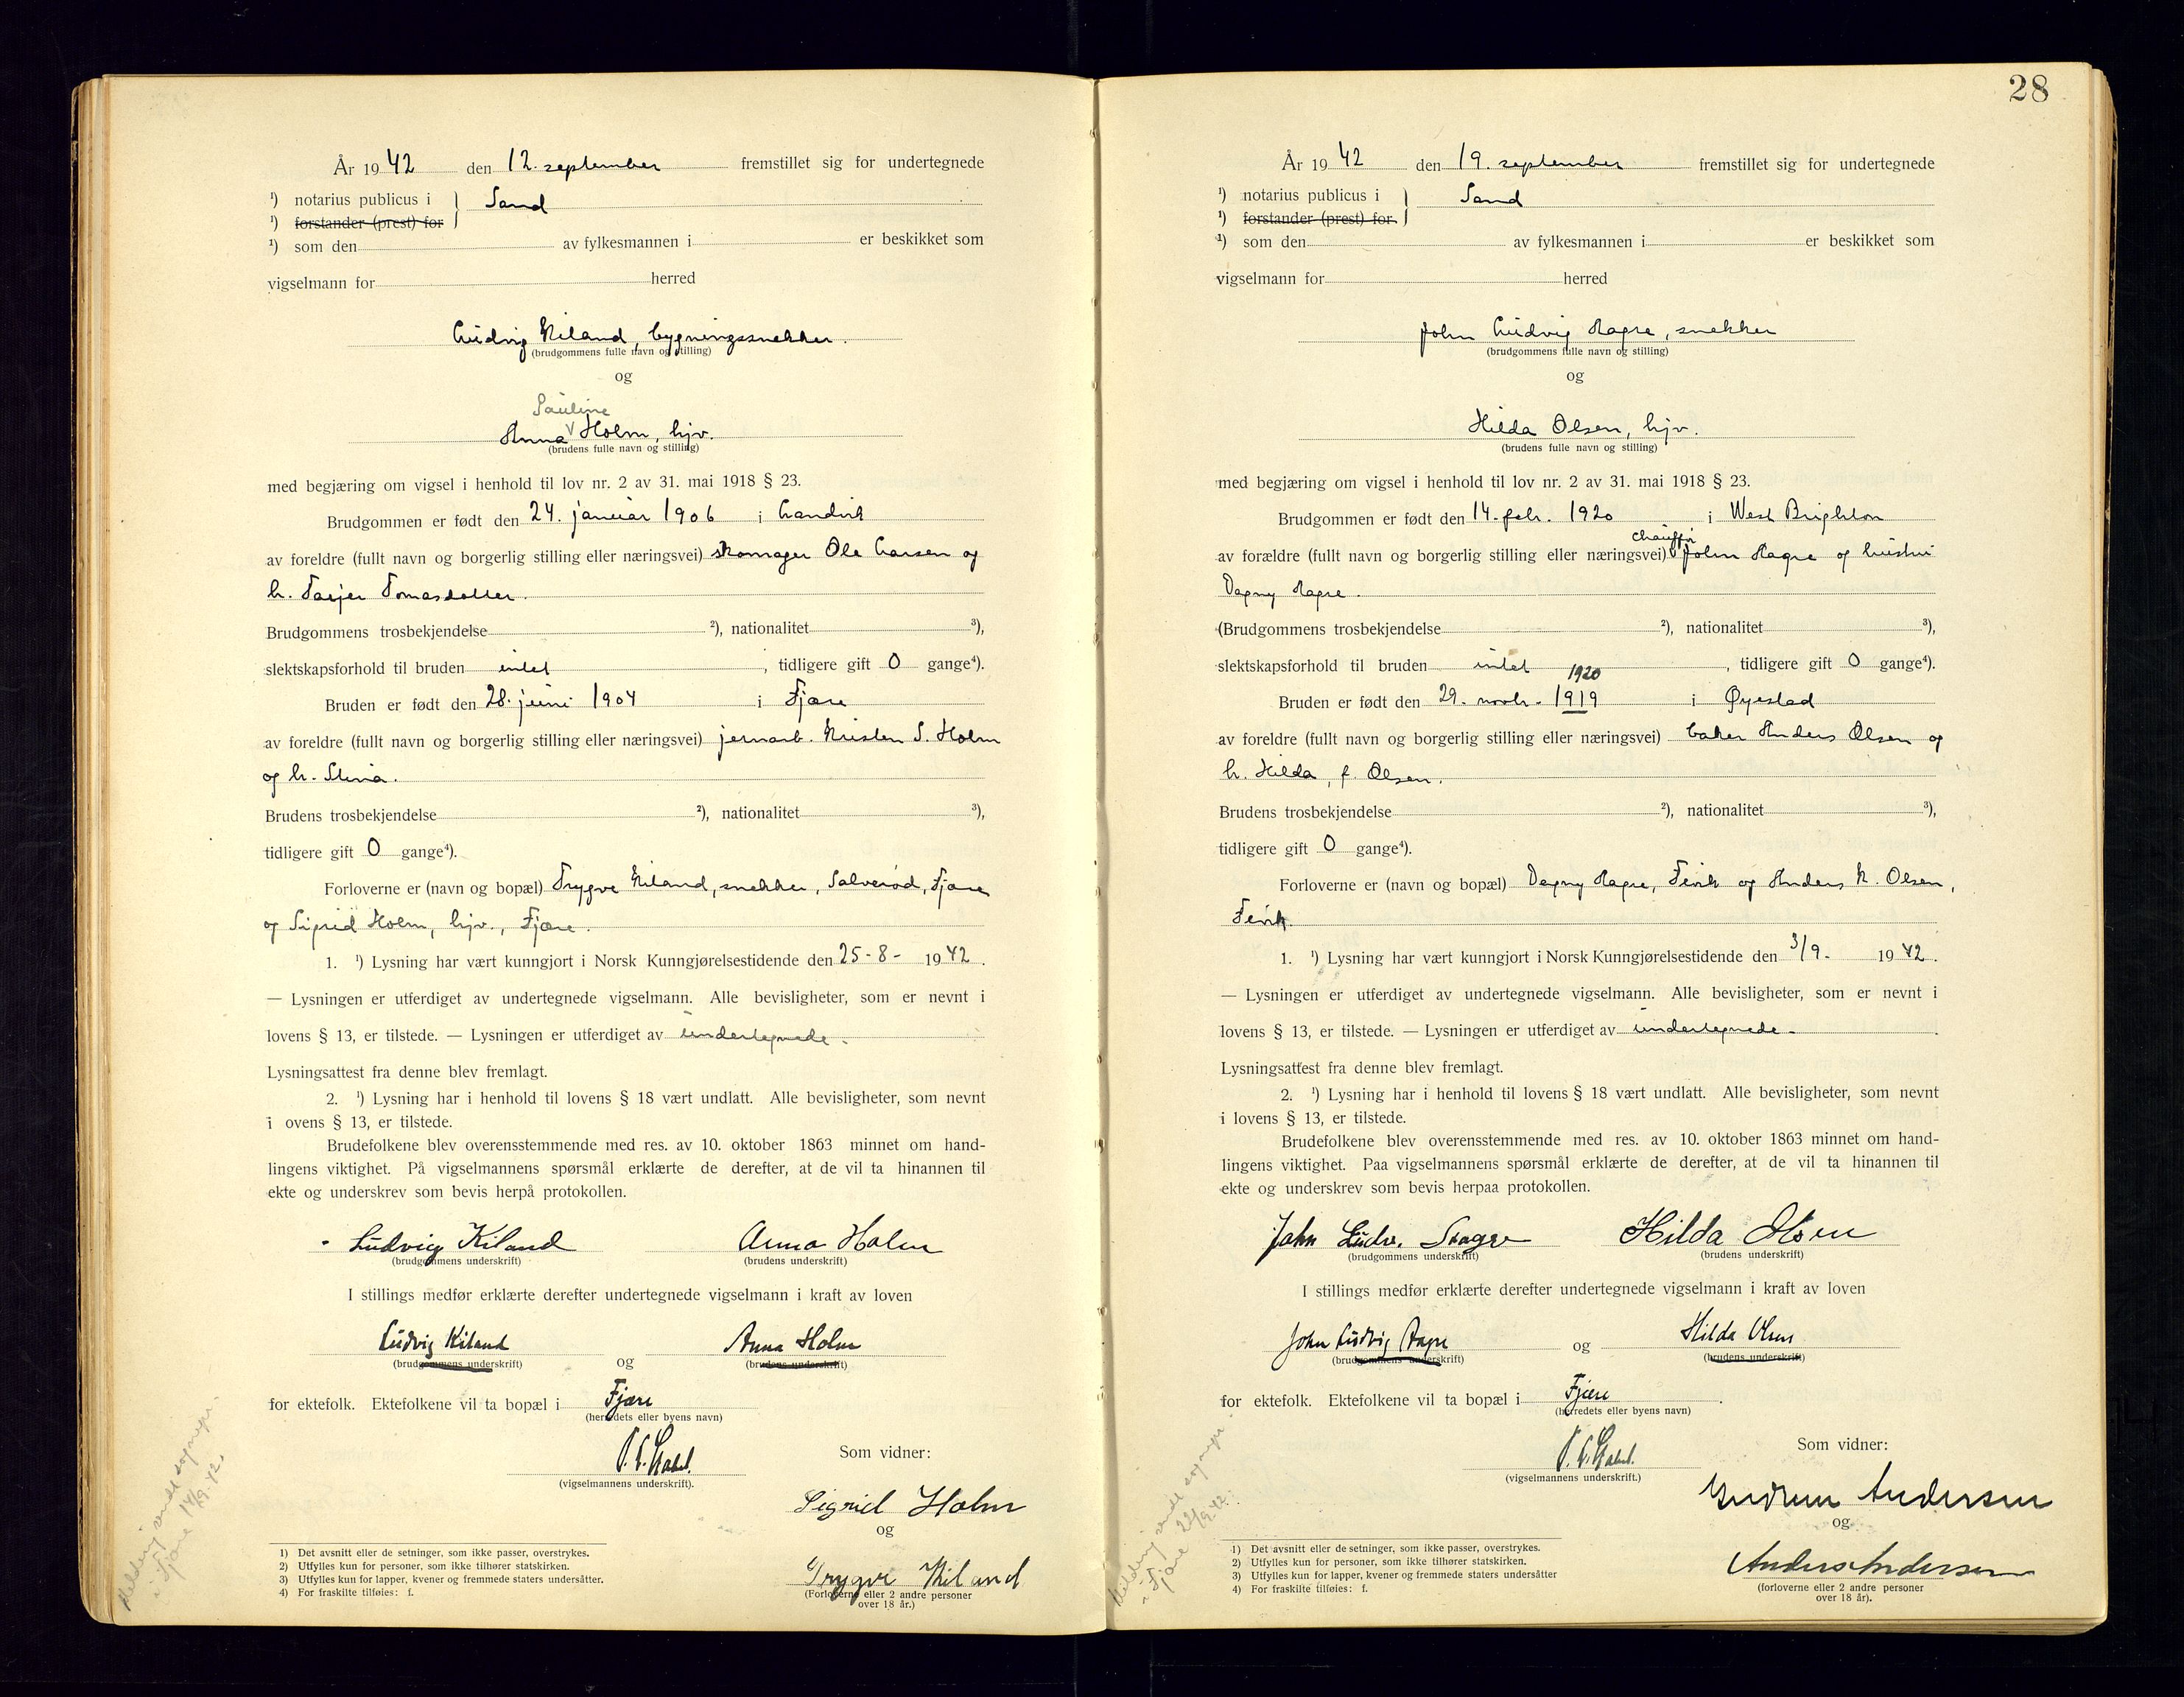 År 1942 den 12. september fremstillet sig for undertegnede
¹) notarius publicus i } Sand
¹) forstander (prest) for
¹) som den av fylkesmannen i er beskikket som
vigselmann for herred
Ludvig Kiland, bygningssnekker.
(brudgommens fulle navn og stilling)
og
Pauline
Anna V Holm, hjv.
(brudens fulle navn og stilling)
med begjæring om vigsel i henhold til lov nr. 2 av 31. mai 1918 § 23.
Brudgommen er født den 24. januar 1906 i Landvik
av foreldre (fullt navn og borgerlig stilling eller næringsvei) skomager Ole Larsen og
h. Tarjer Tomasdatter.
Brudgommens trosbekjendelse ²), nationalitet ³),
slektskapsforhold til bruden intet, tidligere gift 0 gange⁴).
Bruden er født den 28. juni 1904 i Fjære
av foreldre (fullt navn og borgerlig stilling eller næringsvei) jernarb. Kristen S. Holm
og h. Stina.
Brudens trosbekjendelse ²), nationalitet ³),
tidligere gift 0 gange⁴).
Forloverne er (navn og bopæl) Trygve Kiland, snekker, Salverød, Fjære
og Sigrid Holm, hjv., Fjære.
1. ¹) Lysning har vært kunngjort i Norsk Kunngjørelsestidende den 25-8- 1942.
— Lysningen er utferdiget av undertegnede vigselmann. Alle bevisligheter, som er nevnt i
lovens § 13, er tilstede. — Lysningen er utferdiget av undertegnede.
Lysningsattest fra denne blev fremlagt.
2. ¹) Lysning har i henhold til lovens § 18 vært undlatt. Alle bevisligheter, som nevnt
i ovens § 13, er tilstede.
Brudefolkene blev overensstemmende med res. av 10. oktober 1863 minnet om hand-
lingens viktighet. På vigselmannens spørsmål erklærte de derefter, at de vil ta hinannen til
ekte og underskrev som bevis herpå protokollen.
Ludvig Kiland Anna Holm
(brudgommens underskrift) (brudens underskrift)
I stillings medfør erklærte derefter undertegnede vigselmann i kraft av loven
Ludvig Kiland og Anna Holm
(brudgommens underskrift) (brudens underskrift)
for ektefolk. Ektefolkene vil ta bopæl i Fjære
(herredets eller byens navn)
(vigselmannens underskrift).
Som vidner:
Sigrid Holm
og
Trygve Kiland
(Forloverne eller 2 andre personer
over 18 år.)
1) Det avsnitt eller de setninger, som ikke passer, overstrykes.
2) Utfylles kun for personer, som ikke tilhører statskirken.
3) Utfylles kun for lapper, kvener og fremmede staters undersåtter.
4) For fraskilte tilføies: f.
Melding sendt sognepr.
i Fjære 14/9.42.
28
År 1942 den 19. september fremstillet sig for undertegnede
¹) notarius publicus i } Sand
¹) forstander (prest) for
¹) som den av fylkesmannen i er beskikket som
vigselmann for herred
John Ludvig Aagre, snekker
(brudgommens fulle navn og stilling)
og
Hilda Olsen, hjv.
(brudens fulle navn og stilling)
med begjæring om vigsel i henhold til lov nr. 2 av 31. mai 1918 § 23.
Brudgommen er født den 14. febr. 1920 i West Brighton
chauffør
av forældre (fullt navn og borgerlig stilling eller næringsvei) V John Aagre og hustru
Dagny Aagre.
(Brudgommens trosbekjendelse ²), nationalitet ³),
slektskapsforhold til bruden intet, tidligere gift 0 gange⁴).
1920
Bruden er født den 29. novbr. 1919 i Øyestad
av foreldre (fullt navn og borgerlig stilling eller næringsvei) baker Anders Olsen og
h. Hilda, f. Olsen.
Brudens trosbekjendelse ²), nationalitet ³),
tidligere gift 0 gange⁴).
Forloverne er (navn og bopæl) Dagny Aagre, Fevik og Anders K. Olsen,
Fevik.
1. ¹) Lysning har vært kunngjort i Norsk Kunngjørelsestidende den 3/9. 1942.
— Lysningen er utferdiget av undertegnede vigselmann. Alle bevisligheter, som er nevnt i
lovens § 13, er tilstede. — Lysningen er utferdiget av undertegnede.
Lysningsattest fra denne blev fremlagt.
2. ¹) Lysning har i henhold til lovens § 18 vært undlatt. Alle bevisligheter, som nevnt
i lovens § 13, er tilstede.
Brudefolkene blev overensstemmende med res. av 10. oktober 1863 minnet om hand-
lingens viktighet. Paa vigselmannens spørsmål erklærte de derefter, at de vil ta hinannen til
ekte og underskrev som bevis herpaa protokollen.
John Ludv. Aagre Hilda Olsen
(brudgommens underskrift) (brudens underskrift)
I stillings medfør erklærte derefter undertegnede vigselmann i kraft av loven
John Ludvig Aagre og Hilda Olsen
(brudgommens underskrift) (brudens underskrift)
for ektefolk. Ektefolkene vil ta bopæl i Fjære.
(herredets eller byens navn)
(vigselmannens underskrift.)
Som vidner:
Gudrun Andersen
og
Anders Andersen
(forloverne eller 2 andre personer
over 18 år).
1) Det avsnitt eller de setninger, som ikke passer, overstrykes.
2) Utfylles kun for personer, som ikke tilhører statskirken.
3) Utfylles kun for lapper, kvener og fremmede staters undersåtter
4) For fraskilte tilføies: f.
Melding sendt sognepr.
i Fjære 22/9.42.